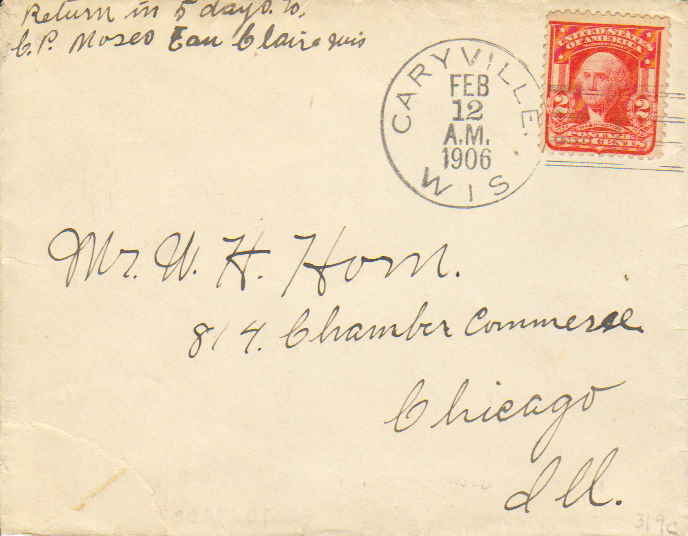 Return in 5 days. to,
C. P. Moseo Eau Claire wis
CARYVILLE.
FEB
12
A.M.
1906
WIS.
UNITED STATES
OF AMERICA
2 2
TWO CENTS
Mr. W. H. Horn.
814. Chamber Commerce
Chicago
Ill.
319c